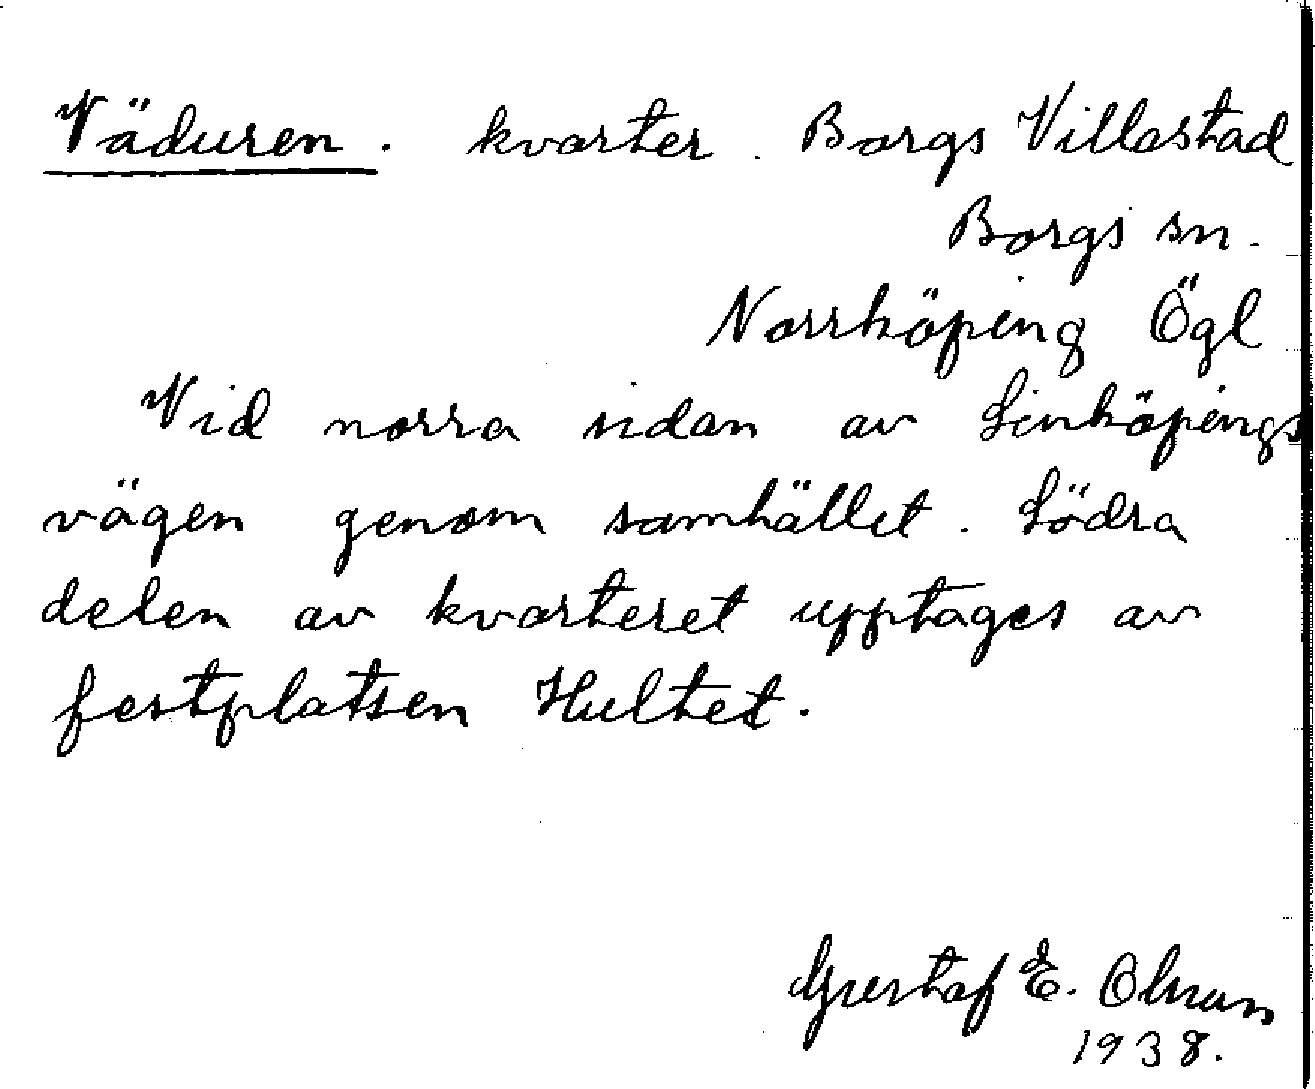 Väduren. kvarter. Borgs Villastad
Borgs sn.
Norrköping Ögl
Vid norra sidan av Linköpings
vägen genom samhället. Södra
delen av kvarteret upptages av
festplatsen Hultet.
Gustaf E. Olman
1938.